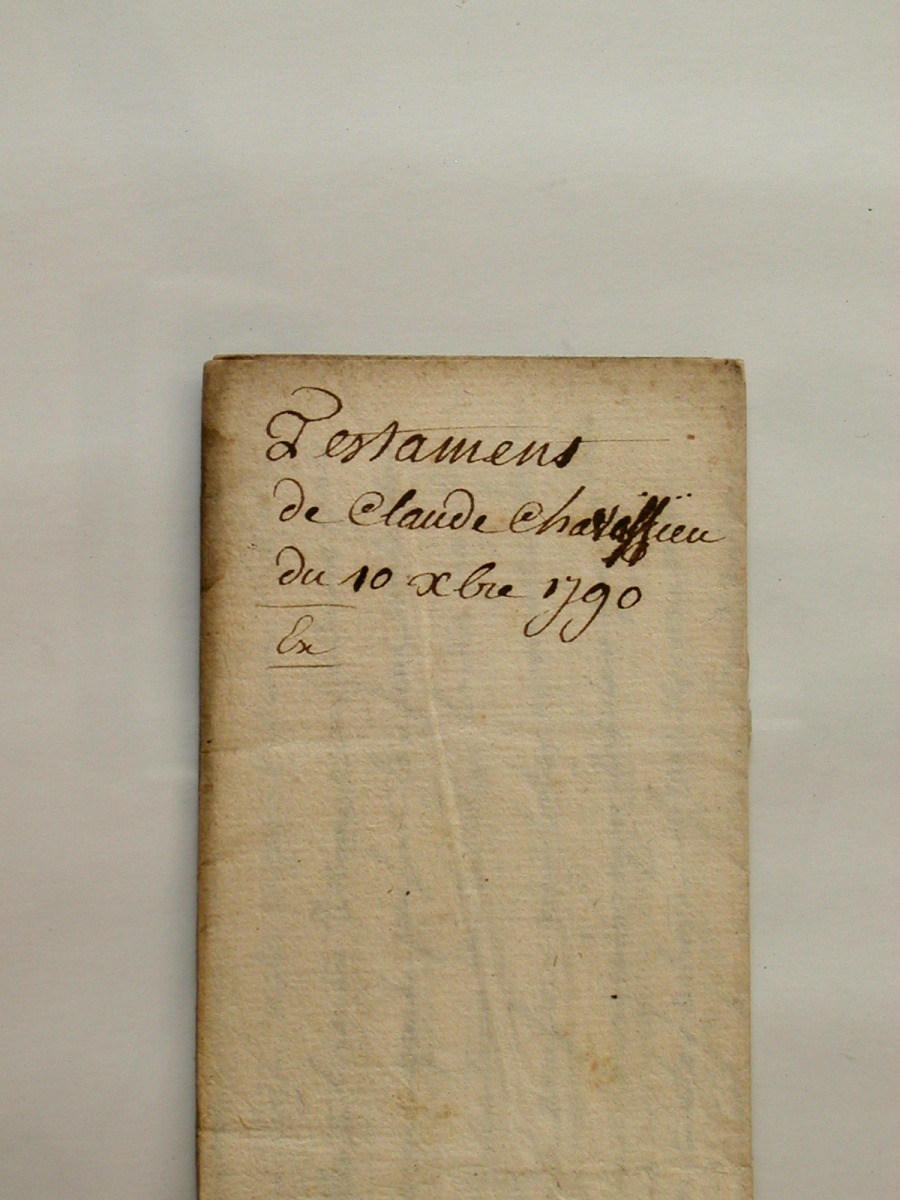 Testament
de Claude Chavassieu
du 10 xbre 1790
Ex